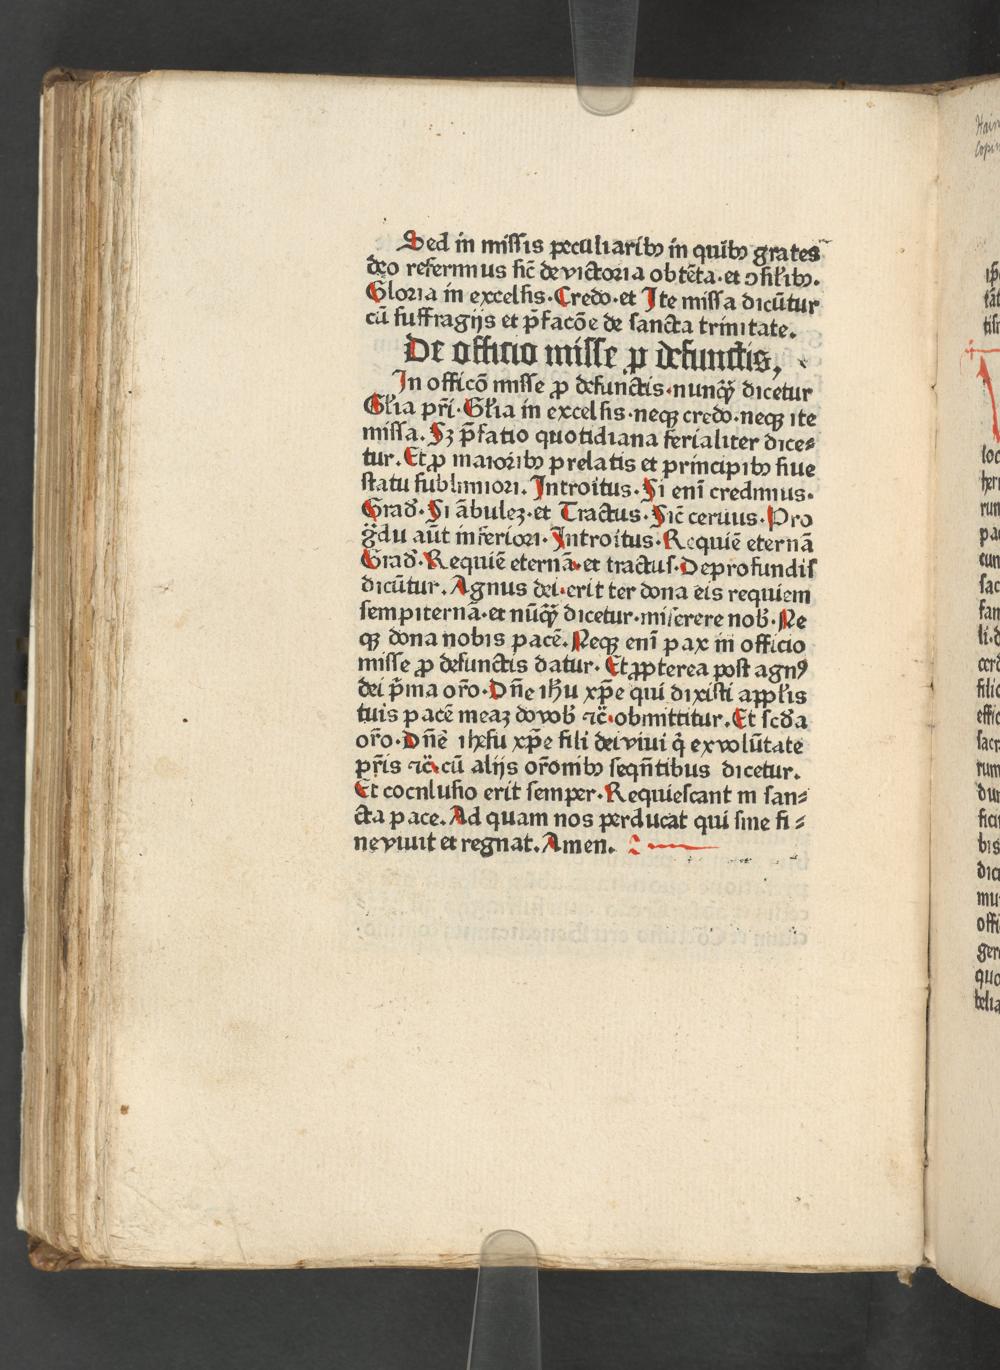 Sed in missis peculiaribꝫ in quibꝫ grates
deo referimus sic̄ de victoria obtēta·et ↄsilibꝫ.
Gloria in excelsis·Credo·et Ite missa dicūtur
cū suffragijs et p̄facōe de sancta trinitate.
De officio misse ꝓ defunctis,
In officō misse ꝓ defunctis·nunqꝫ̄ dicetur
Gl̄ia pr̄i·Gl̄ia in excelsis·neqꝫ credo·neqꝫ ite
missa. Sꝫ p̄fatio quotidiana ferialiter dice⸗
tur. Et ꝓ maioribꝫ prelatis et principibꝫ siue
statu sublimiori. Introitus·Si eni credimus·
Grad̄·Si ābulez·et Tractus·Sic̄ ceruus·Pro
g̈du aūt inferiori·Introitus·Requiē eternā
Grad̄·Requiē eternā·et tractus·De profundis
dicūtur. Agnus dei·erit ter dona eis requiem
sempiternā·et nūqꝫ̄ dicetur·miserere nob̄·Ne
qꝫ dona nobis pacē. Neqꝫ eni pax in officio
misse ꝓ defunctis datur. Et ꝓpterea post agnꝰ
dei p̄ma or̄o·Dn̄e ih̄u xp̄e qui dixisti appl̄is
tuis pacē meaꝫ do vob̄ ⁊c̈·obmittitur. Et scd̄a
or̄o·Dn̄e ihesu xp̄e fili dei viui q̇ ex volūtate
pr̄is ⁊c̈·cū alijs or̄onibꝫ seqn̄tibus dicetur.
Et cocnlusio erit semper·Requiescant in san⸗
cta pace. Ad quam nos perducat qui sine fi⸗
ne viuit et regnat. Amen.